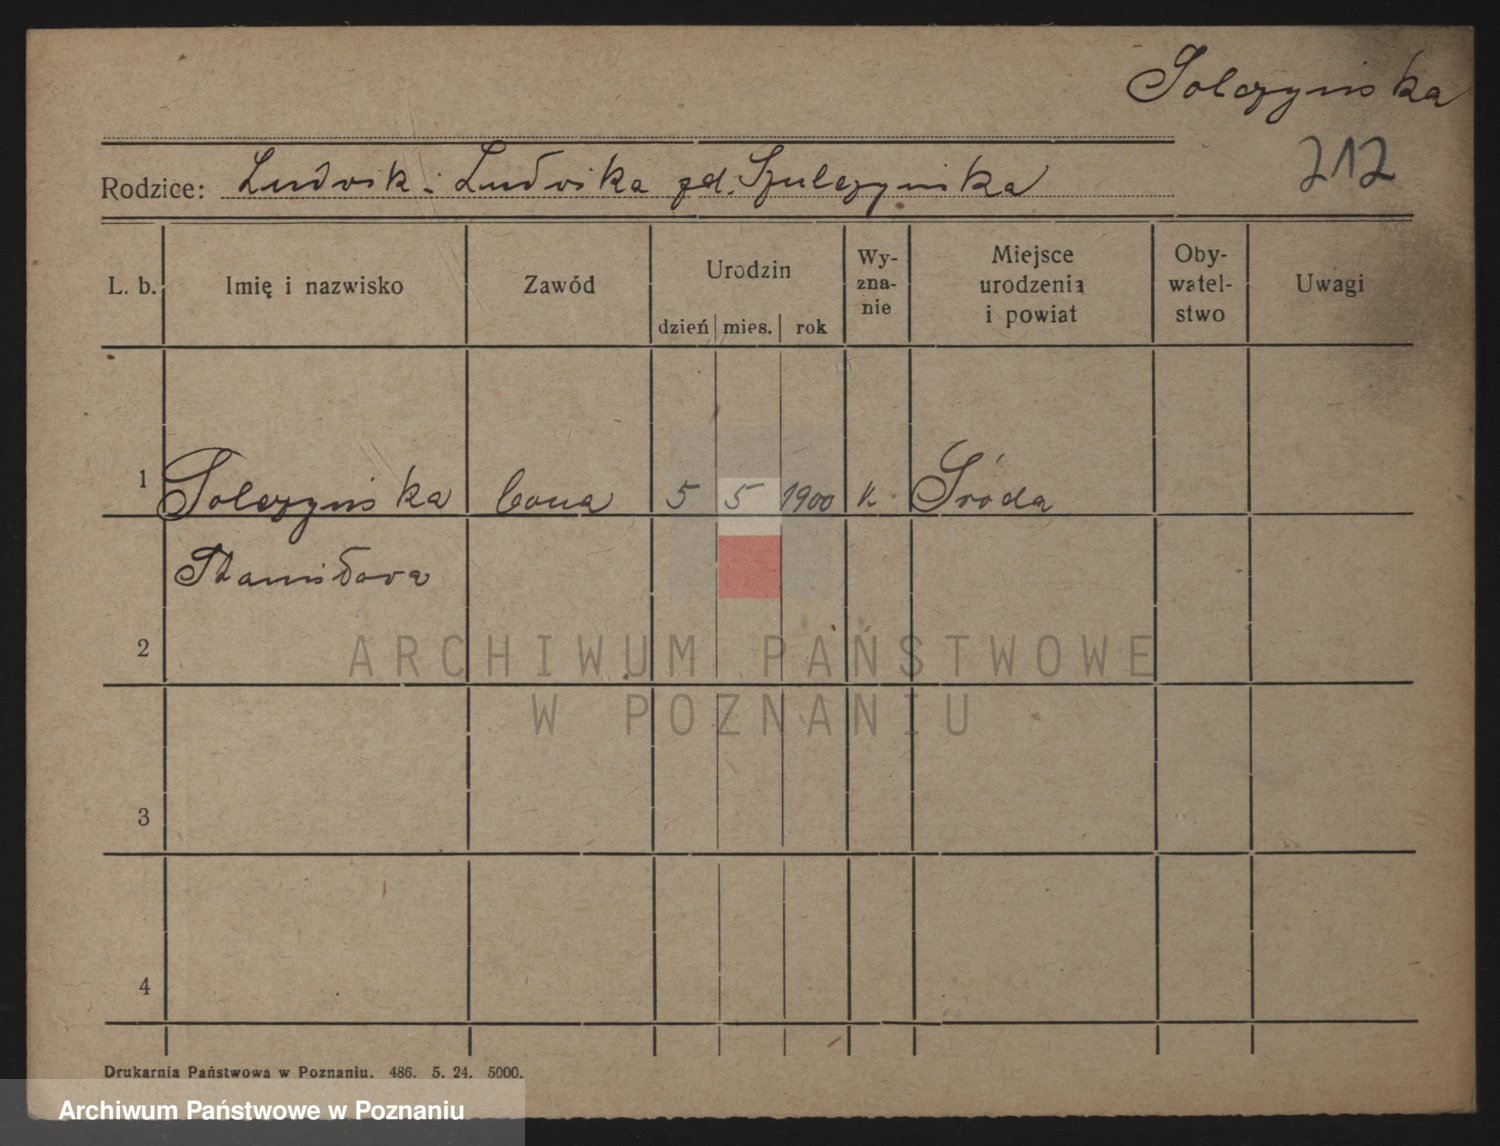 Solczyńska
212
Rodzice: Ludwik i Ludwika zd. Szulczyńska
L. b. Imię i nazwisko Zawód Urodzin dzień mies. rok Wy-zna-nie Miejsce urodzenia i powiat Oby-watel-stwo Uwagi
1 Solczyńska córka 5 5 1900 k. Środa
Stanisława
2
3
4
Drukarnia Państwowa w Poznaniu. 486. 5. 24. 5000.
ARCHIWUM PAŃSTWOWE
W POZNANIU
Archiwum Państwowe w Poznaniu